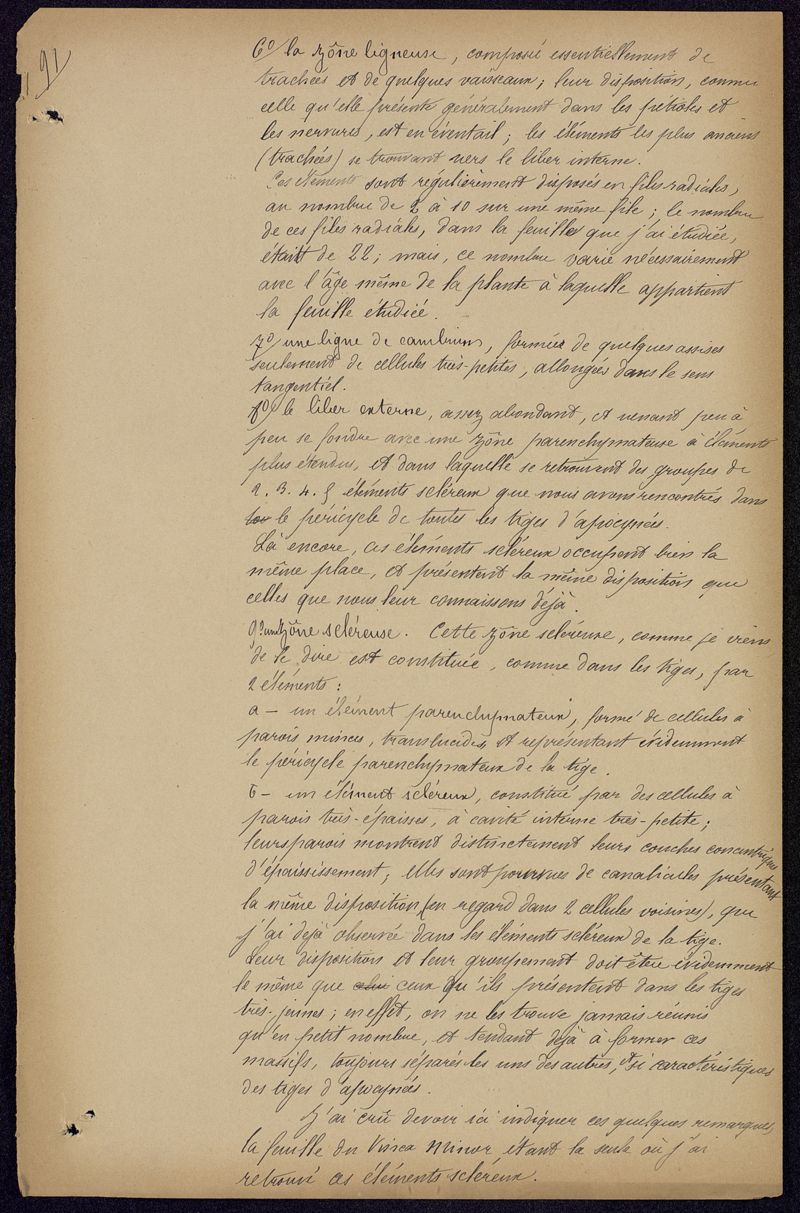 91
6º/ la zône ligneuse, composée essentiellement de
trachées et de quelques vaisseaux ; leur disposition, comme
celle qu'elle présente généralement dans les pétioles et
les nervures, est en éventail ; les éléments les plus anciens
(trachées) se trouvant vers le liber interne.
Ces éléments sont régulièrement disposés en files radiales,
au nombre de 2 à 10 sur une même file ; le nombre
de ces files radiales, dans la feuille que j'ai étudiée,
était de 22 ; mais, ce nombre varie nécessairement
avec l'âge même de la plante à laquelle appartient
la feuille étudiée.
7º/ une ligne de cambium, formée de quelques assises
seulement de cellules très-petites, allongées dans le sens
tangentiel.
8º/ le liber externe, assez abondant, et venant peu à
peu se fondre avec une zône parenchymateuse à éléments
plus étendus, et dans laquelle se retrouvent des groupes de
2. 3. 4. 5 éléments scléreux que nous avons rencontrés dans
le péricycle de toutes les tiges d'apocynées.
Là encore, ces éléments scléreux occupent bien la
même place, et présentent la même disposition que
celles que nous leur connaissons déjà.
9º une zône scléreuse. Cette zône scléreuse, comme je viens
de le dire est constituée, comme dans les tiges, par
2 éléments :
a – un élément parenchymateux, formé de cellules à
parois minces, translucides et représentant évidemment
le péricycle parenchymateux de la tige.
b – un élément scléreux, constitué par des cellules à
parois très-épaisses, à cavité interne très-petite ;
leurs parois montrent distinctement leurs couches concentriques
d'épaississement ; elles sont pourvues de canalicules présentant
la même disposition (en regard dans 2 cellules voisines), que
j'ai déjà observée dans les éléments scléreux de la tige.
Leur disposition et leur groupement doit être évidemment
le même que celui ceux qu'ils présentent dans les tiges
très-jeunes ; en effet, on ne les trouve jamais réunis
qu'en petit nombre, et tendant déjà à former ces
massifs, toujours séparés les uns des autres, et si caractéristiques
des tiges d'apocynées.
J'ai crû devoir ici indiquer ces quelques remarques,
la feuille du Vinca minor étant la seule où j'ai
retrouvé ces éléments scléreux.